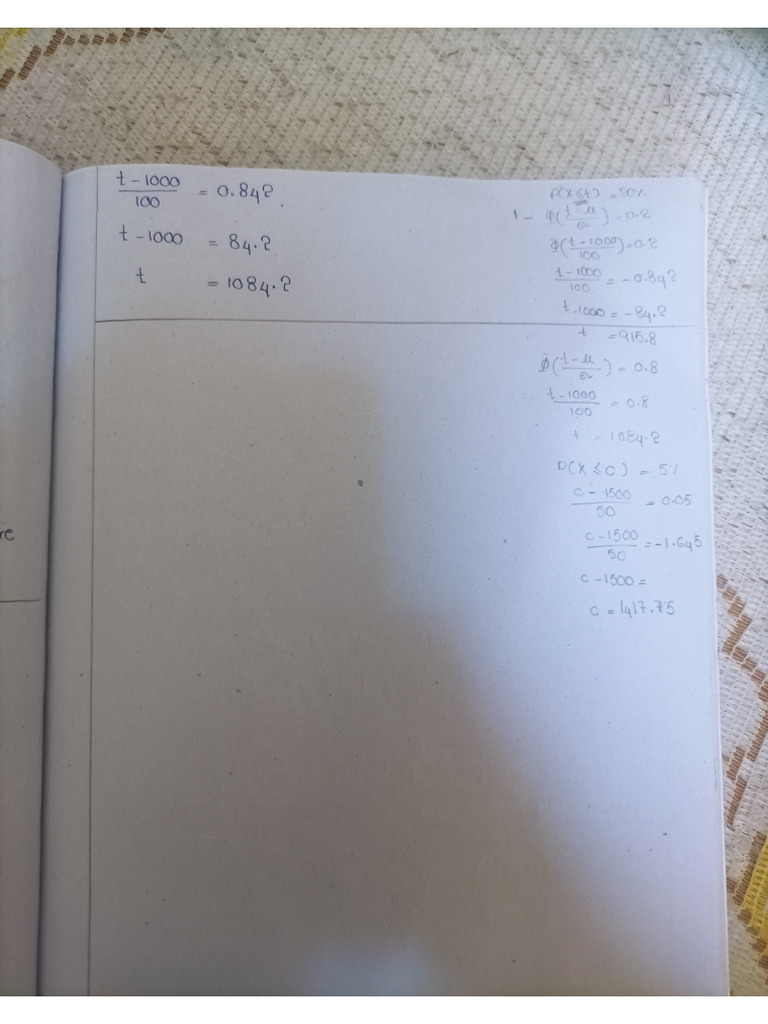 t - 1000 / 100 = 0.842.
t - 1000 = 84.2
t = 1084.2
P(X ≤ t) = 20%
1 - Φ(t - μ / σ) = 0.2
Φ(t - 1000 / 100) = 0.2
t - 1000 / 100 = -0.842
t - 1000 = -84.2
t = 915.8
Φ(t - μ / σ) = 0.8
t - 1000 / 100 = 0.8
t = 1084.2
P(X ≤ C) = 5%
C - 1500 / 50 = 0.05
C - 1500 / 50 = -1.645
C - 1500 =
C = 1417.75
re